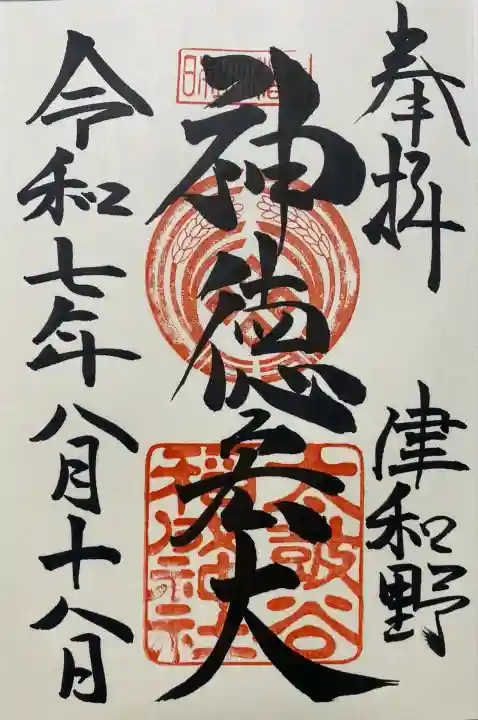 奉拝
津和野
神徳宏大
太皷谷
稲成神社
令和七年八月十八日